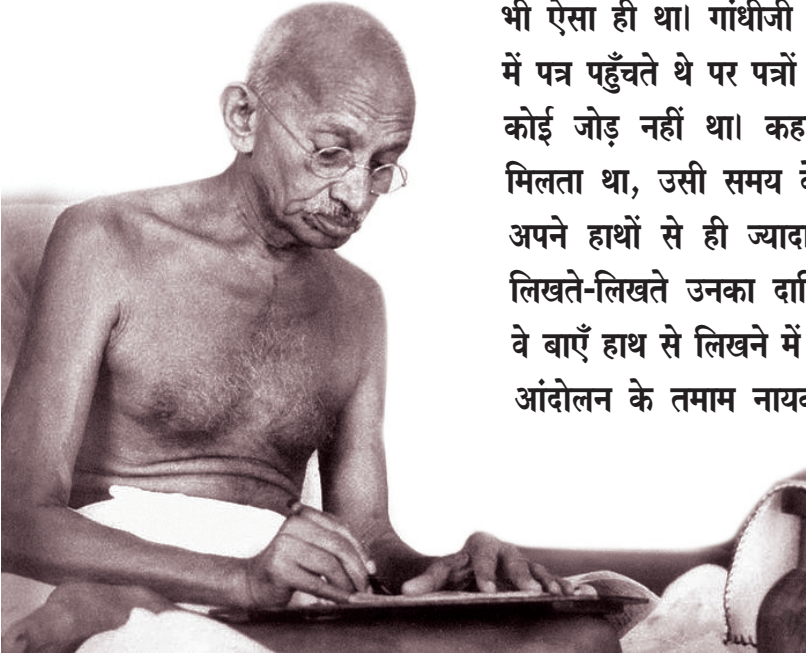 भी ऐसा ही था। गांधीजी
में पत्र पहुँचते थे पर पत्रों
कोई जोड़ नहीं था। कह
मिलता था, उसी समय
अपने हाथों से ही ज्यादा
लिखते-लिखते उनका
वे बाएँ हाथ से लिखने में
आंदोलन के तमाम